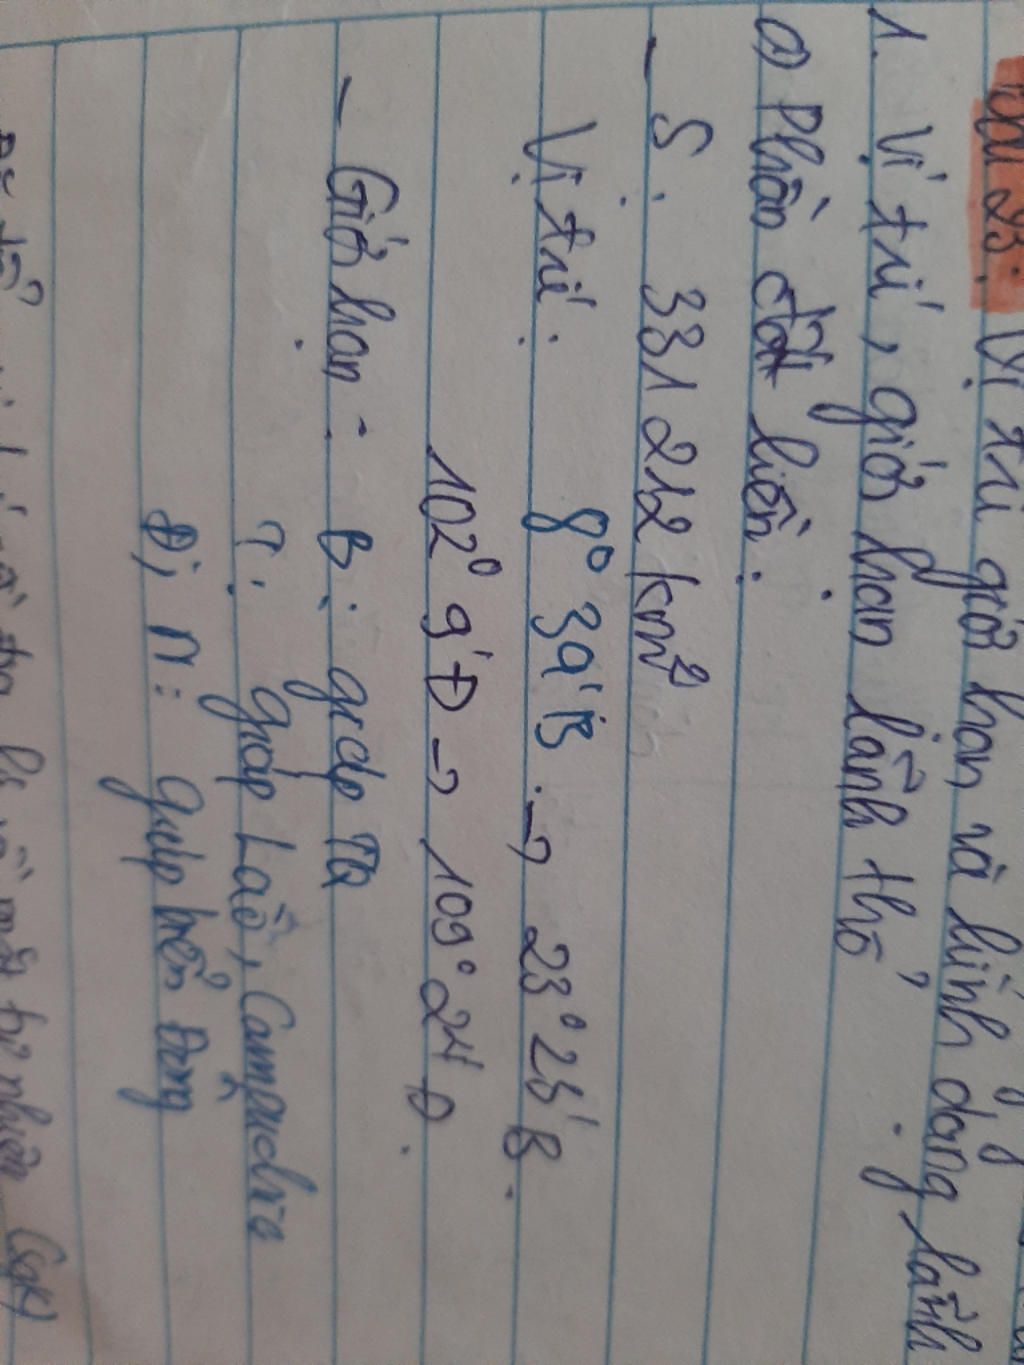 Bài 23: Vị trí giới hạn và hình dạng lãnh
1. Vị trí, giới hạn lãnh thổ.
a) Phần đất liền:
- S: 331 212 km²
Vị trí: 8° 34' B → 23° 23' B.
102° 9' Đ → 109° 24' Đ.
- Giới hạn: B: giáp TQ
T: giáp Lào, Campuchia
Đ, N: giáp biển Đông
tự nhiên (sgk)